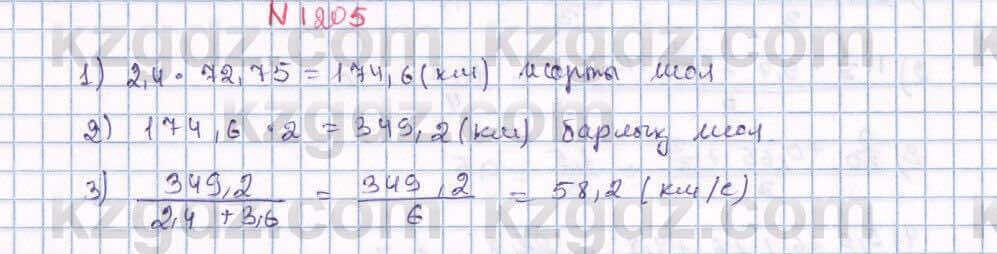 N 1205
1) 2,4 · 72,75 = 174,6 (км) жарты жол
2) 174,6 · 2 = 349,2 (км) барлық жол.
3) 349,2 / 2,4 + 3,6 = 349,2 / 6 = 58,2 (км/с)
kzgdz.com kzgdz.com
kzgdz.com kzgdz.com